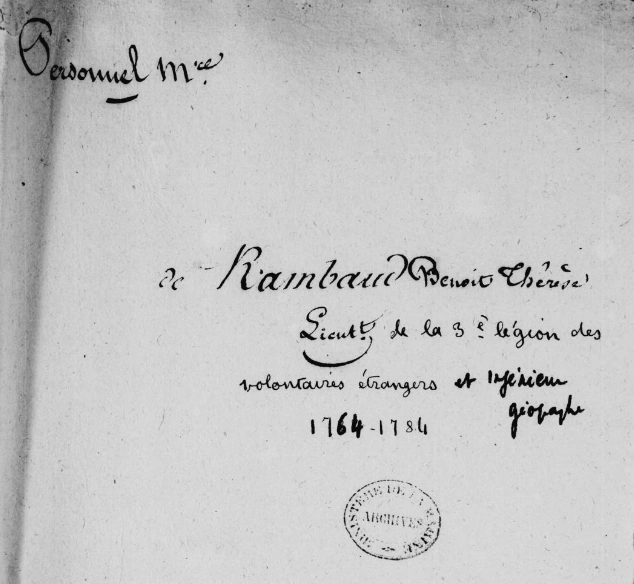 Personnel Mce
de Rambaud Benoit Thérèse
Lieutt. de la 3e légion des
volontaires étrangers et Ingénieur
géographe
1764-1784
MINISTÈRE DE LA MARINE
ARCHIVES